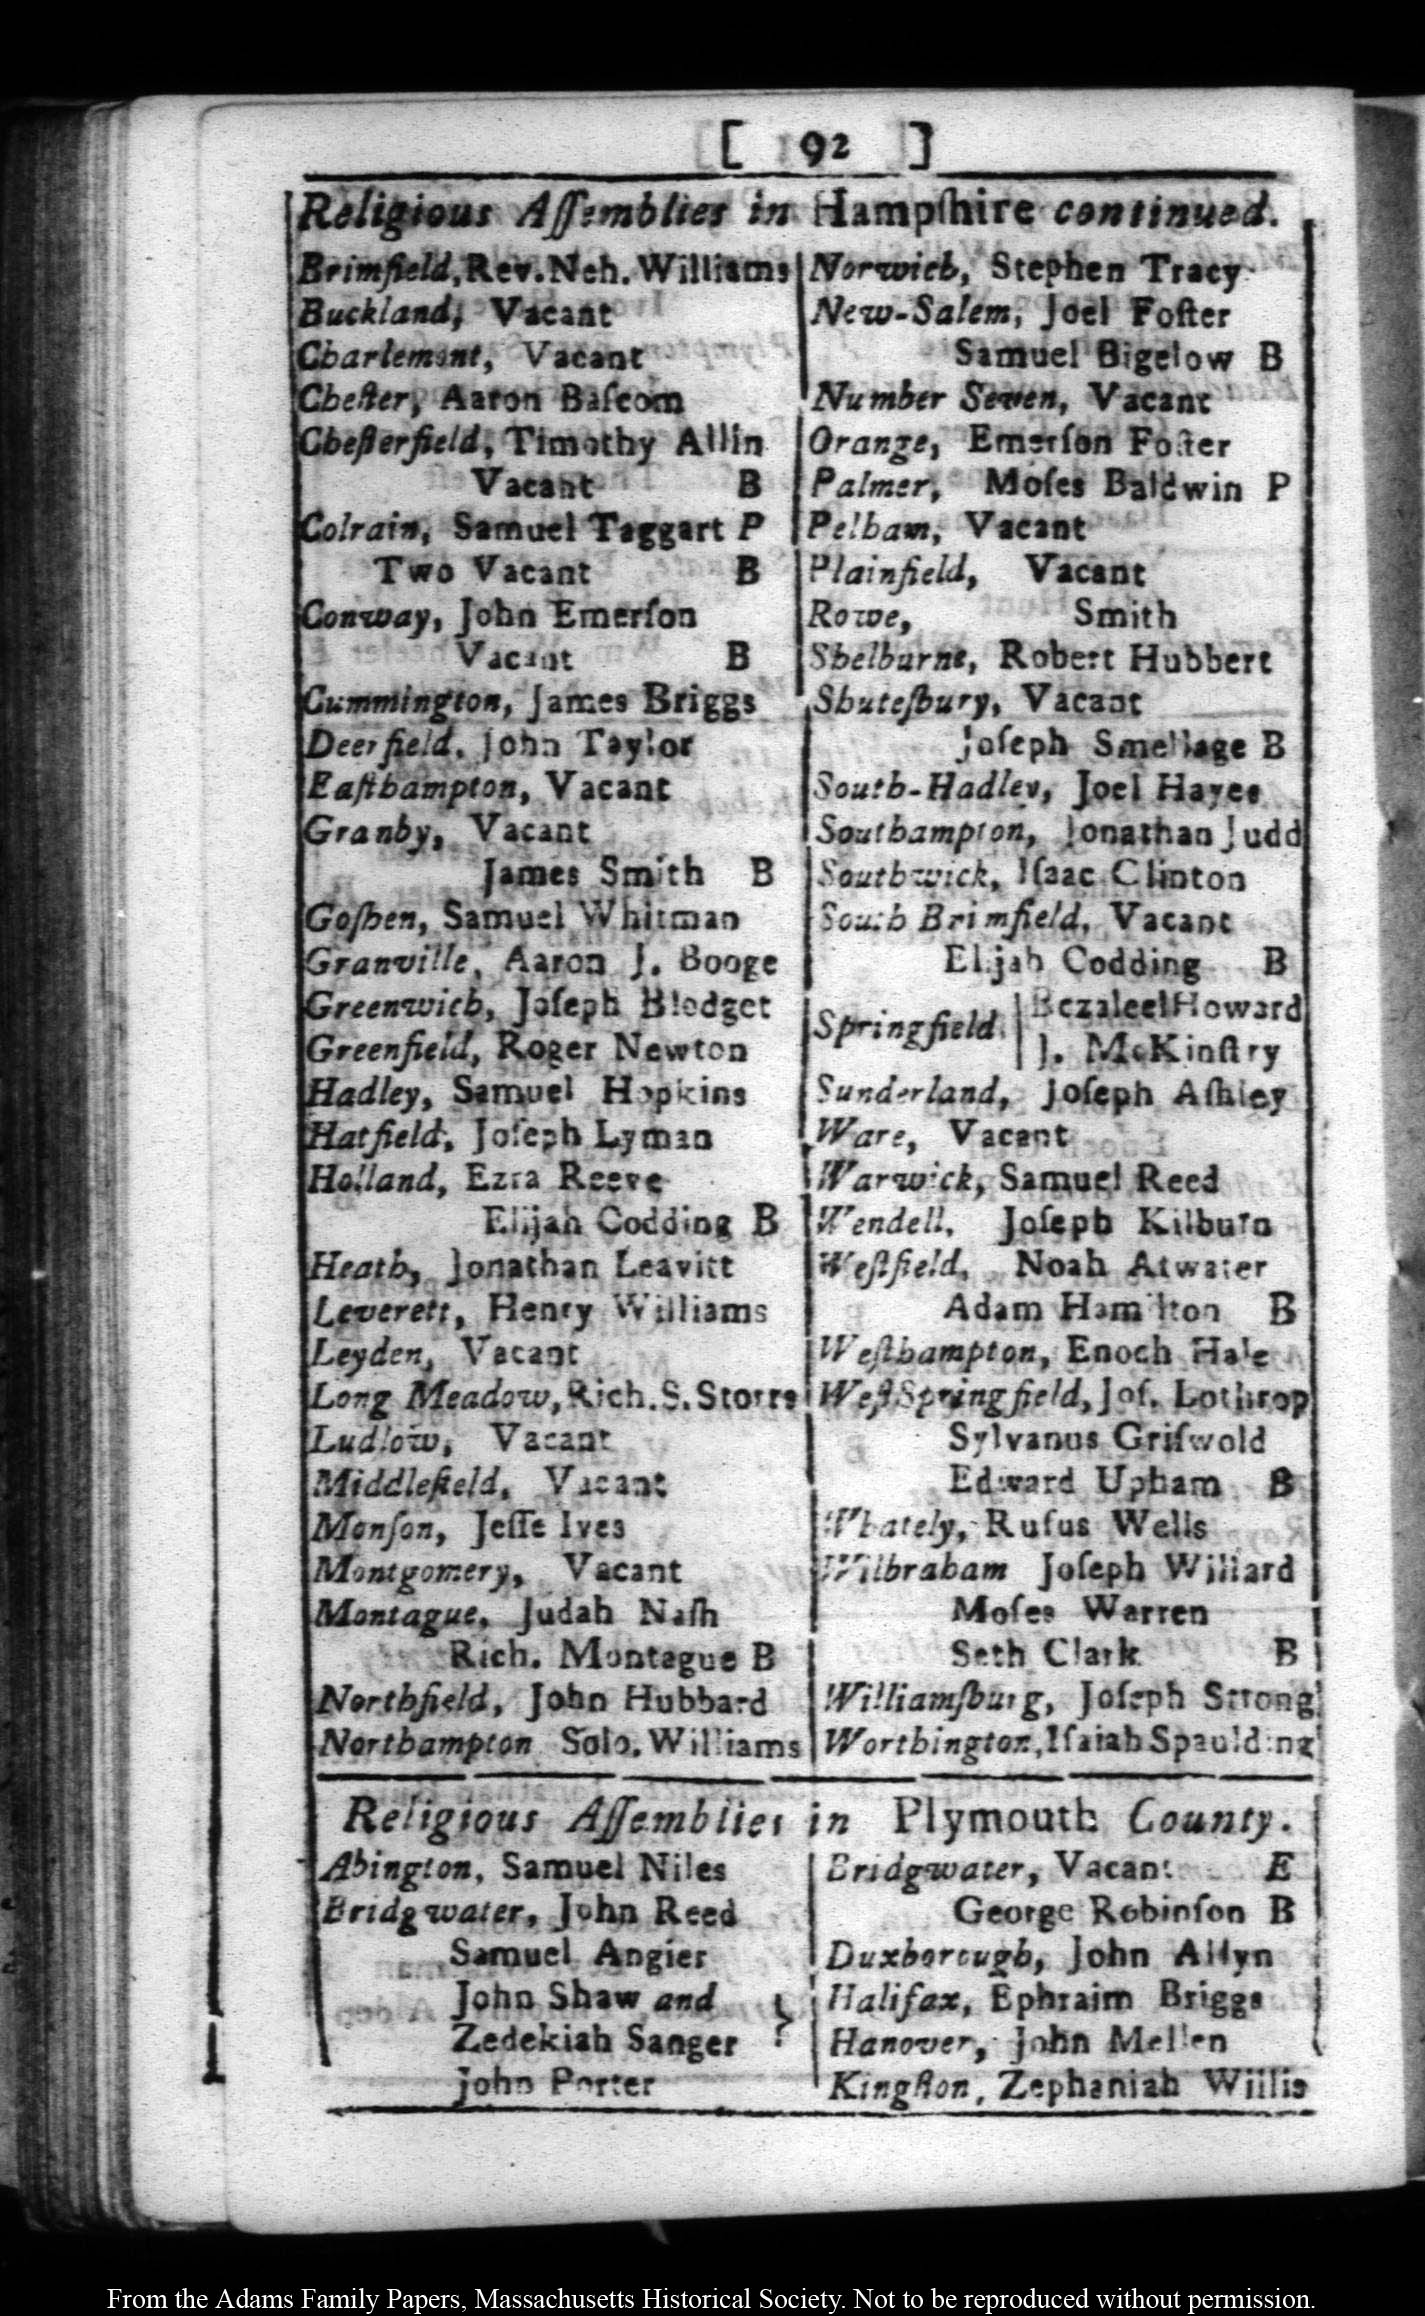 [ 92 ]
Religious Aſſemblies in Hampſhire continued.
Brimfield, Rev. Neh. Williams
Buckland, Vacant
Charlemont, Vacant
Cheſter, Aaron Baſcom
Cheſterfield, Timothy Allin
Vacant B
Colrain, Samuel Taggart P
Two Vacant B
Conway, John Emerſon
Vacant B
Cummington, James Briggs
Deerfield, John Taylor
Eaſthampton, Vacant
Granby, Vacant
James Smith B
Goſhen, Samuel Whitman
Granville, Aaron J. Booge
Greenwich, Joſeph Blodget
Greenfield, Roger Newton
Hadley, Samuel Hopkins
Hatfield, Joſeph Lyman
Holland, Ezra Reeve
Elijah Codding B
Heath, Jonathan Leavitt
Leverett, Henry Williams
Leyden, Vacant
Long Meadow, Rich. S. Storrs
Ludlow, Vacant
Middlefield, Vacant
Monſon, Jeſſe Ives
Montgomery, Vacant
Montague, Judah Naſh
Rich. Montague B
Northfield, John Hubbard
Northampton Solo. Williams
Norwich, Stephen Tracy
New-Salem, Joel Foſter
Samuel Bigelow B
Number Seven, Vacant
Orange, Emerſon Foſter
Palmer, Moſes Baldwin P
Pelham, Vacant
Plainfield, Vacant
Rowe, Smith
Shelburne, Robert Hubbert
Shuteſbury, Vacant
Joſeph Smellage B
South-Hadley, Joel Hayes
Southampton, Jonathan Judd
Southwick, Iſaac Clinton
South Brimfield, Vacant
Elijah Codding B
Springfield Bezaleel Howard
J. McKinſtry
Sunderland, Joſeph Aſhley
Ware, Vacant
Warwick, Samuel Reed
Wendell, Joſeph Kilburn
Weſtfield, Noah Atwater
Adam Hamilton B
Weſthampton, Enoch Hale
Weſt Springfield, Joſ. Lothrop
Sylvanus Griſwold
Edward Upham B
Whately, Rufus Wells
Wilbraham Joſeph Willard
Moſes Warren
Seth Clark B
Williamſburg, Joſeph Strong
Worthington, Iſaiah Spaulding
Religious Aſſemblies in Plymouth County.
Abington, Samuel Niles
Bridgwater, John Reed
Samuel Angier
John Shaw and }
Zedekiah Sanger
John Porter
Bridgwater, Vacant E
George Robinſon B
Duxborough, John Allyn
Halifax, Ephraim Briggs
Hanover, John Mellen
Kingſton, Zephaniah Willis
From the Adams Family Papers, Massachusetts Historical Society. Not to be reproduced without permission.